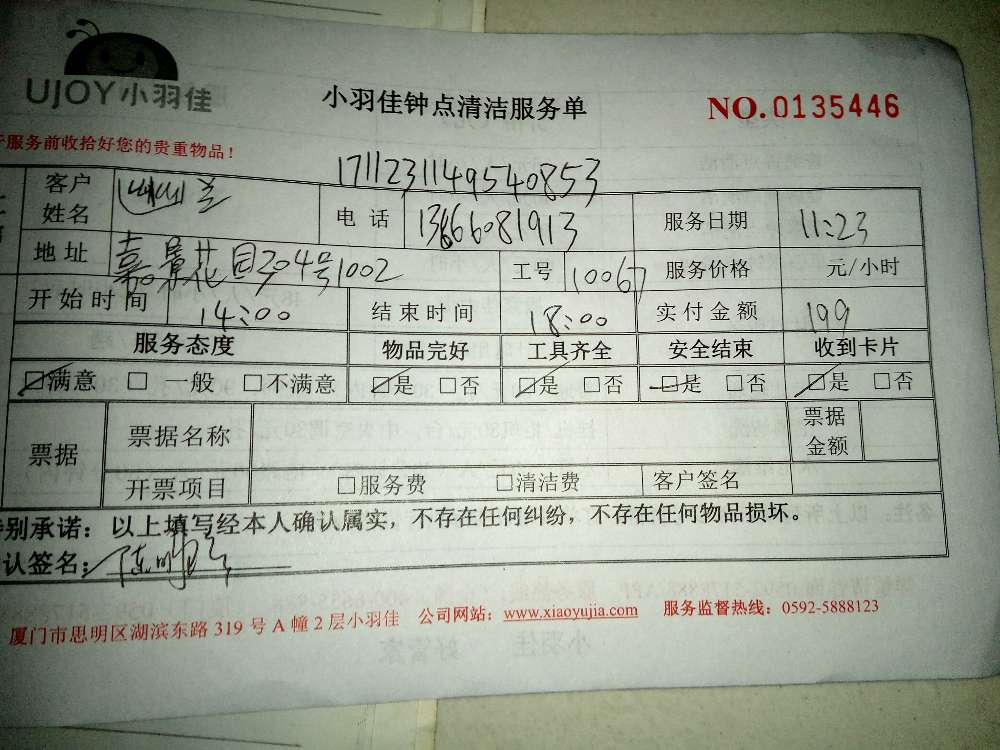 UJOY小羽佳
小羽佳钟点清洁服务单
NO.0135446
服务前收拾好您的贵重物品！
171123114954​0853
客户姓名 电话 13666081913 服务日期 11:23
地址 嘉景花园304号1002 工号 10067 服务价格 元/小时
开始时间 14:00 结束时间 18:00 实付金额 199
服务态度 物品完好 工具齐全 安全结束 收到卡片
☑满意 □一般 □不满意 ☑是 □否 ☑是 □否 ☑是 □否 ☑是 □否
票据 票据名称 票据金额
开票项目 □服务费 □清洁费 客户签名
别承诺：以上填写经本人确认属实，不存在任何纠纷，不存在任何物品损坏。
认签名：
厦门市思明区湖滨东路 319 号 A 幢 2 层小羽佳 公司网站：www.xiaoyujia.com 服务监督热线：0592-5888123